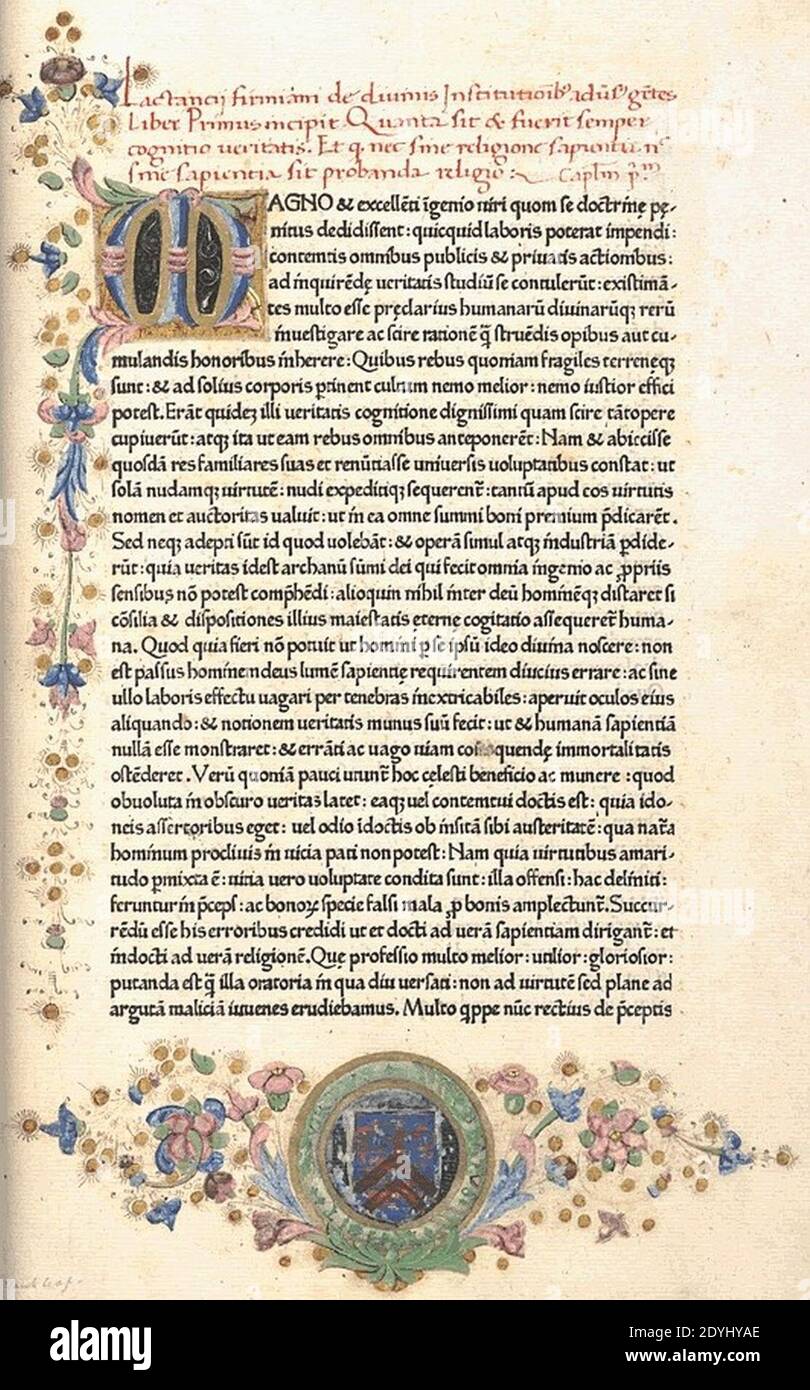 Lactancij firmiani de diuinis Institutioib9 adũs9 gẽtes
Liber Primus incipit. Quanta sit & fuerit semper
cognitio ueritatis. Et q nec sine religione sapientia nec
sine sapientia sit probanda religio: Caplm p.m
MAGNO & excellẽti ĩgenio uiri quom se doctrinę pę-
nitus dedidissent: quicquid laboris poterat impendi:
contemtis omnibus publicis & priuatis actionibus:
ad inquirendę ueritatis studiũ se contulerũt: existimã-
tes multo esse pręclarius humanarũ diuinarũqꝫ rerũ
inuestigare ac scire rationẽ q̃ struẽdis opibus aut cu-
mulandis honoribus inherere: Quibus rebus quoniam fragiles terrenęqꝫ
sunt: & ad solius corporis ꝑtinent cultum nemo melior: nemo iustior effici
potest. Erãt quideꝫ illi ueritatis cognitione dignissimi quam scire tãtopere
cupiuerũt: atqꝫ ita ut eam rebus omnibus anteponerẽt: Nam & abiecisse
quosdã res familiares suas et renũtiasse uniuersis uoluptatibus constat: ut
solã nudamqꝫ uirtutẽ: nudi expeditiqꝫ sequerent̃: tantũ apud eos uirtutis
nomen et auctoritas ualuit: ut in ea omne summi boni premium p̃dicarẽt.
Sed neqꝫ adepti sũt id quod uolebãt: & operã simul atqꝫ industriã ꝑdide-
rũt: quia ueritas idest archanũ sũmi dei qui fecit omnia ingenio ac ꝓpriis
sensibus nõ potest comp̃hẽdi: alioquin nihil inter deũ hominẽqꝫ distaret si
cõsilia & dispositiones illius maiestatis eterne cogitatio assequeret̃ huma-
na. Quod quia fieri nõ potuit ut homini ꝑ se ipsũ ideo diuina noscere: non
est passus hominem deus lumẽ sapientię requirentem diucius errare: ac sine
ullo laboris effectu uagari per tenebras inextricabiles: aperuit oculos eius
aliquando: & notionem ueritatis munus suũ fecit: ut & humanã sapientiã
nullã esse monstraret: & errãti ac uago uiam consequendę immortalitatis
ostẽderet. Verũ quoniã pauci utunt̃ hoc cęlesti beneficio ac munere: quod
obuoluta in obscuro ueritas latet: eaqꝫ uel contemtui doctis est: quia ido-
neis assertoribus eget: uel odio ĩdoctis ob insitã sibi austeritatẽ: qua nat̃a
hominum procliuis in uicia pati non potest: Nam quia uirtutibus amari-
tudo ꝑmixta ẽ: uitia uero uoluptate condita sunt: illa offensi: hac deliniti:
feruntur in p̃ceps: ac bonoꝝ specie falsi mala ꝓ bonis amplectunt̃. Succur-
rẽdũ esse his erroribus credidi ut et docti ad uerã sapientiam dirigant̃: et
indocti ad uerã religionẽ. Quę professio multo melior: utilior: gloriosior:
putanda est q̃ illa oratoria in qua diu uersati: non ad uirtutẽ sed plane ad
argutã maliciã iuuenes erudiebamus. Multo q̣ppe nũc rectius de p̃ceptis
alamy
Image ID: 2DYHYAE
www.alamy.com